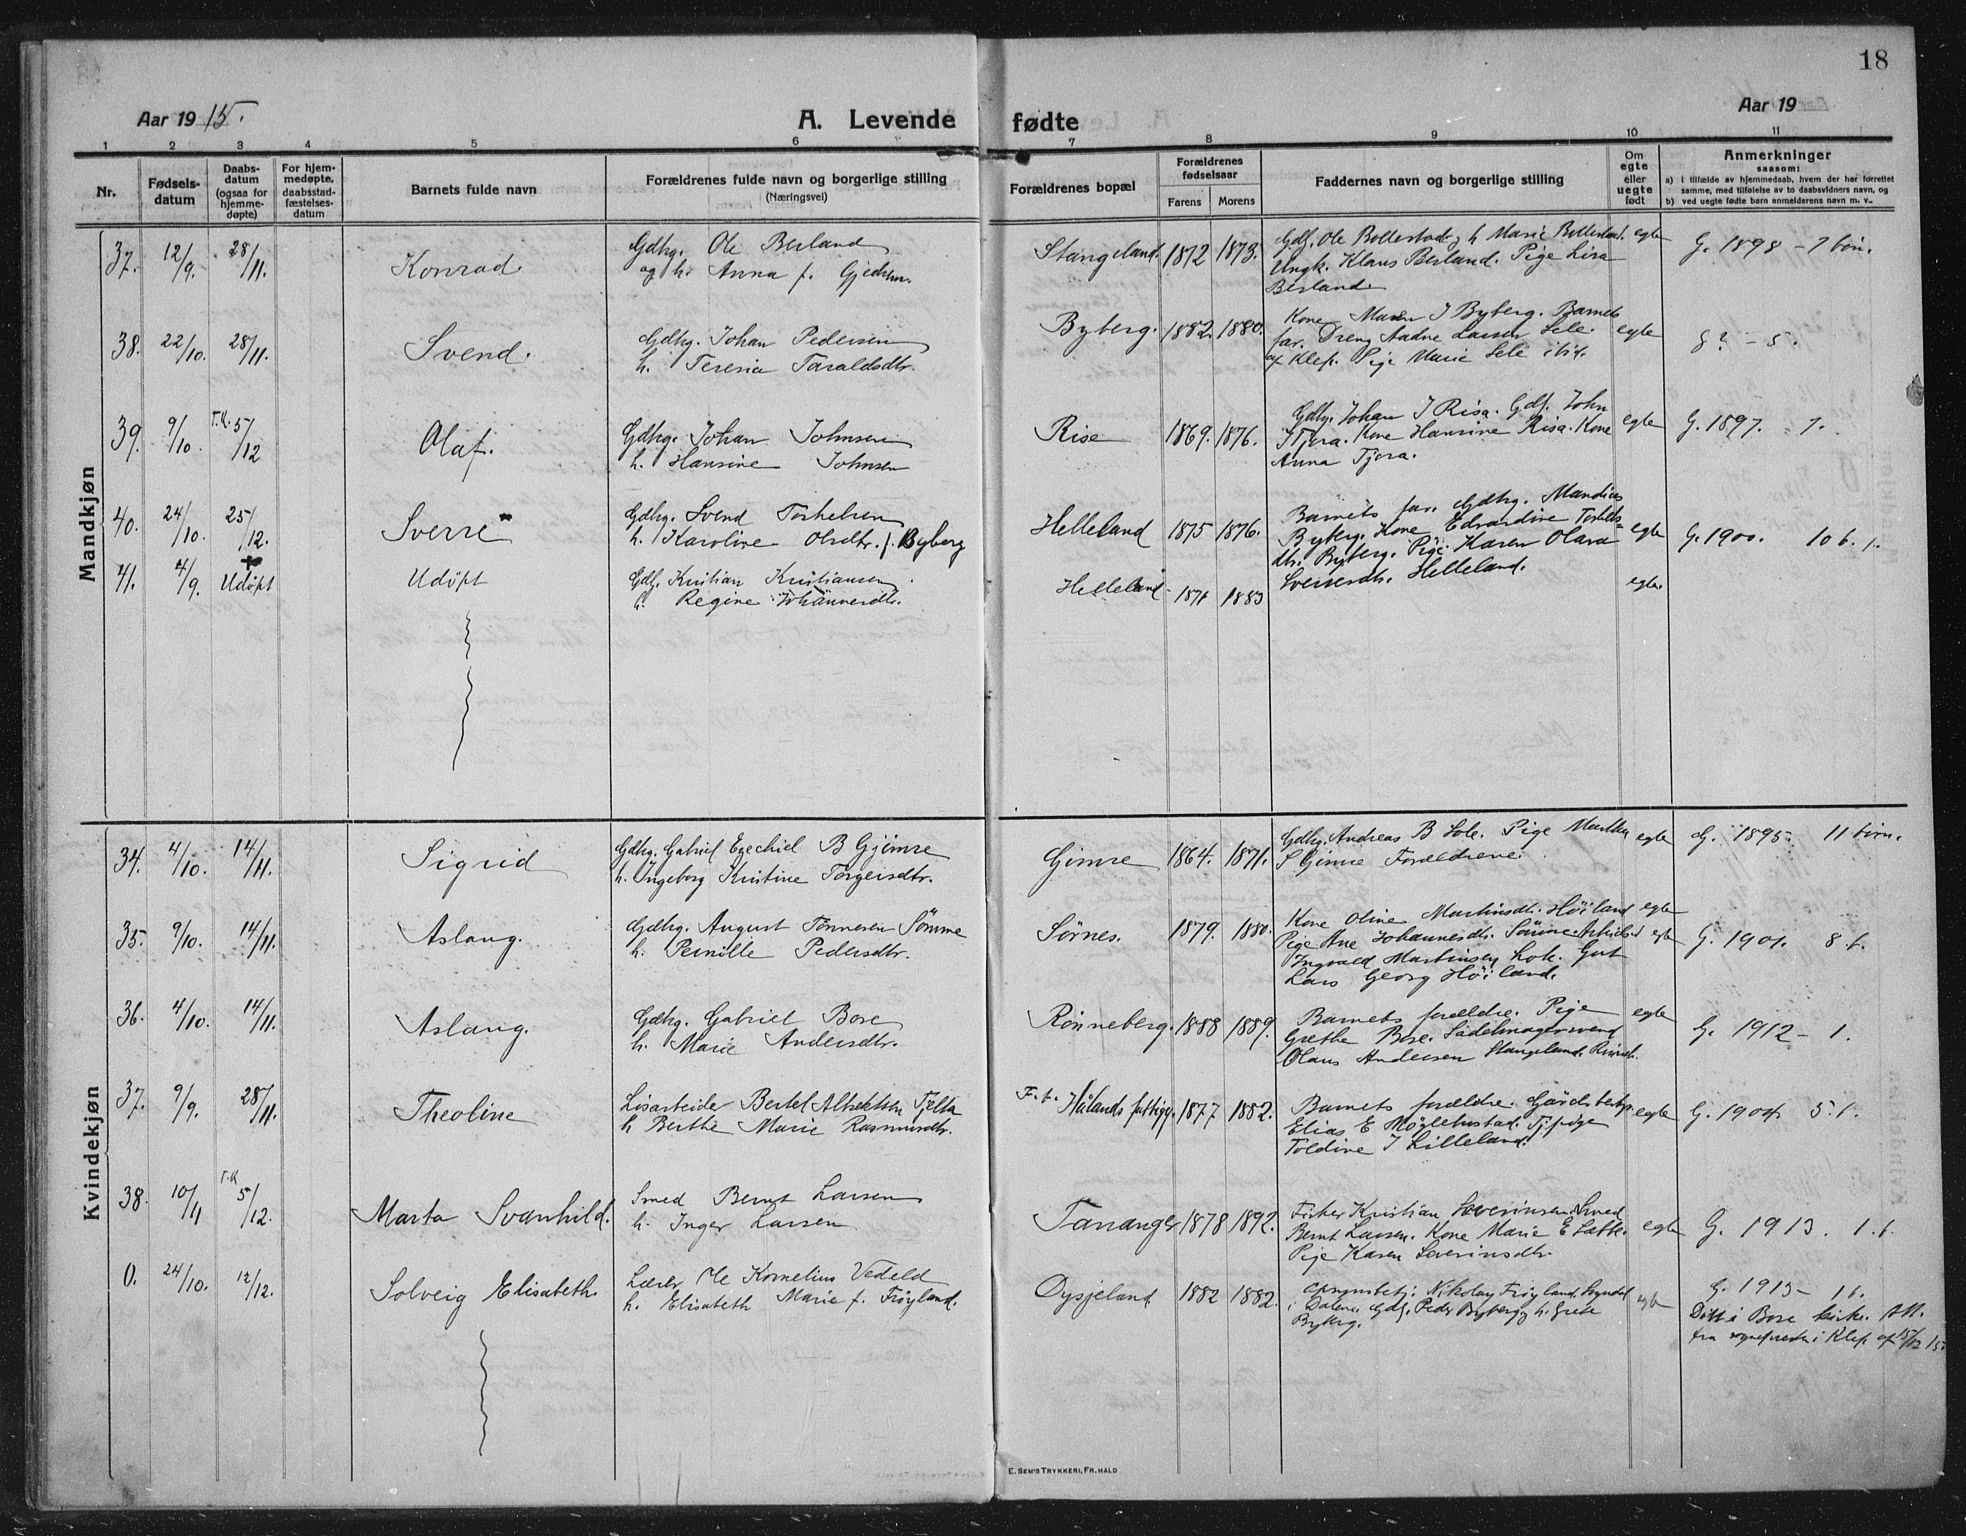 18
Aar 1915.
A. Levende fødte
Aar 19
1 2 3 4 5 6 7 8 9 10 11
Nr.
Fødsels-
datum
Daabs-
datum
(ogsaa for
hjemme-
døpte)
For hjem-
medøpte,
daabsstad-
fæstelses-
datum
Barnets fulde navn
Forældrenes fulde navn og borgerlige stilling
(Næringsvei)
Forældrenes bopæl
Forældrenes
fødselsaar
Farens Morens
Faddernes navn og borgerlige stilling
Om
egte
eller
uegte
født
Anmerkninger
saasom:
a) i tilfælde av hjemmedaab, hvem der har forrettet
samme, med tilføielse av to daabsvidners navn, og
b) ved uegte fødte barn anmelderens navn m. v.
Mandkjøn
37. 12/9. 28/11. Konrad.
Gdbg. Ole Berland
og h. Anna f.
Stangeland. 1872 1873.
Gdf. Ole Bollestad og h Marie Bollestad.
Ungk. Klaus Berland. Pige Lisa
Berland.
egte G. 1898 - 7 børn.
38. 22/10. 28/11. Svend.
Gdbg. Johan Pedersen
h. Teresia Taraldsdtr.
Byberg. 1882. 1880.
Kone Maren J Byberg. Barnets
far. Dreng Aadne Larsen Sele.
af Klep. Pige Marie Sele ibid.
egte g? - 5.
39. 9/10. T.K. 5/12 Olaf.
Gdbg. Johan Johnsen
h. Hansine Johnsen
Rise 1869. 1876.
Gdbg. Johan J Risa. Gdf. John
J Tjora. Kone Hansine Risa. Kone
Anna Tjora.
egte G. 1897. 7.
40. 24/10. 25/12. Sverre
Gdbg. Svend Torkelsen
h. Karoline Olsdtr. f. Byberg
Helleland 1875 1876.
Barnets far. Gdbg. Mandius
Byberg. Kone Edvardine Torkels-
dtr. Byberg. Pige Karen Olava
Sveinsdtr. Helleland.
egte G. 1900. 10 b.
41. 4/9. Udøpt Udøpt
Gdf. Kristian Kristiansen
h. Regine Johannesdtr.
Helleland 1871 1883 egte.
Kvindekjøn
34. 4/10. 14/11. Sigrid
Gdbg. Gabriel Ezechiel B Gjimre
h. Ingeborg Kristine Torgersdtr.
Gimre 1864. 1871.
Gdbg. Andreas B Sole. Pige Martha
S Gimre Forældrene.
egte G. 1895. 11 børn.
35. 9/10. 14/11. Aslaug.
Gdbg. August Tønnesen Sømme
h. Pernille Pedersdtr.
Sørnes. 1879. 1880.
Kone Oline Martinsdtr. Høiland egte
Pige Ane Johannesdtr. Sømme. egte
Ingvald Martinsen Gut
Lars Georg Høiland.
G. 1901. 8 b.
36. 4/10. 14/11. Aslaug.
Gdbg. Gabriel Bore
h. Marie Andersdtr.
Rønneberg. 1888 1889.
Barnets forældre. Pige
Grethe Bore. Sadelmagersvend
Olaus Andersen Stangeland.
egte G. 1912 - 1.
37. 9/9. 28/11. Theoline
Lisarbeider Bertel Albrektsen Tjelta
h Berthe Marie Rasmusdtr.
F.t. Hålands fattigg. 1877 1882.
Barnets forældre. Gårdsbestyr
Elias E Møglehustad. Tj.pige
Toldine J Lilleland.
egte G. 1904. 5. b.
38. 10/11 T.K 5/12. Marta Svanhild.
Smed Bernt Larsen
h. Inger Larsen
Tananger 1878 1892.
Fisker Kristian Severinsen. Smed
Bernt Larsen. Kone Marie E
Pige Karen Severinsdtr.
egte G. 1913. 1. b.
0. 24/10. 12/12. Solveig Elisabeth.
Lærer Ole Kornelius Vedeld
h. Elisabeth Marie f. Frøyland.
Dysjeland 1882 1882.
Nikolay Frøyland.
i Dalene. Gdf. Peder Byberg og h. Grete
Byberg.
egte G. 1915 - 1 b.
Døbt i Bore kirke. Att.
fra sognepresten i Klep af 15/12 15.
E. SEM'S TRYKKERI, FR.HALD